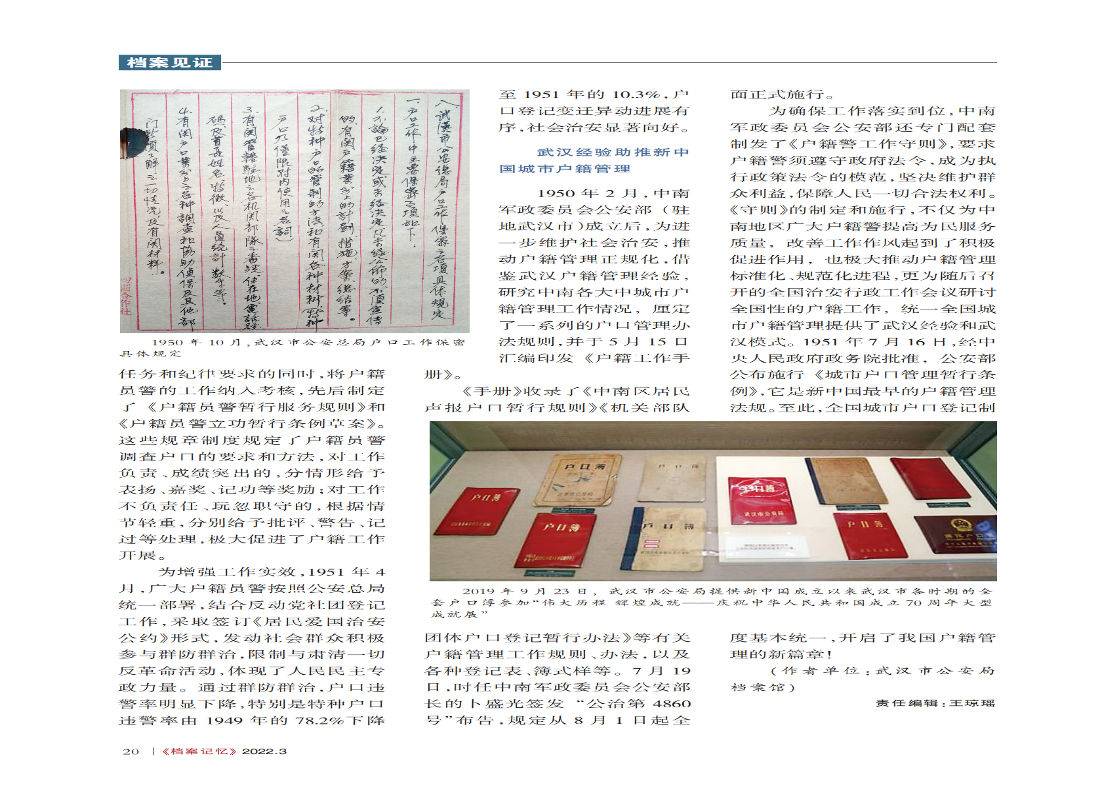 档案见证
八、武汉市公安总局户口工作保密之各项具体规定
一、户口工作中主要保密之项如下.
的有关户籍业务上的计划措施方案总结等。
户口外仅限对内使用之名词)
四有关户口业务上之各种调查和协助侦保及其他部
门所负了解之一切情况及有关材料。
1950 年 10 月,武汉市公安总局户口工作保密
具体规定
任务和纪律要求的同时,将户籍
员警的工作纳入考核,先后制定
了《户籍员警暂行服务规则》和
《户籍员警立功暂行条例草案》。
这些规章制度规定了户籍员警
调查户口的要求和方法,对工作
负责、成绩突出的,分情形给予
表扬、嘉奖、记功等奖励;对工作
不负责任、玩忽职守的,根据情
节轻重,分别给予批评、警告、记
过等处理,极大促进了户籍工作
开展。
为增强工作实效,1951 年 4
月,广大户籍员警按照公安总局
统一部署,结合反动党社团登记
工作,采取签订《居民爱国治安
公约》形式,发动社会群众积极
参与群防群治,限制与肃清一切
反革命活动,体现了人民民主专
政力量。通过群防群治,户口违
警率明显下降,特别是特种户口
违警率由 1949 年的 78.2%下降
至 1951 年的 10.3%,户
口登记变迁异动进展有
序,社会治安显著向好。
武汉经验助推新中
国城市户籍管理
1950 年 2 月,中南
军政委员会公安部(驻
地武汉市)成立后,为进
一步维护社会治安,推
动户籍管理正规化,借
鉴武汉户籍管理经验,
研究中南各大中城市户
籍管理工作情况,厘定
了一系列的户口管理办
法规则,并于 5 月 15 日
汇编印发《户籍工作手
册》。
《手册》收录了《中南区居民
声报户口暂行规则》《机关部队
团体户口登记暂行办法》等有关
户籍管理工作规则、办法,以及
各种登记表、簿式样等。7 月 19
日,时任中南军政委员会公安部
长的卜盛光签发“公治第 4860
号”布告,规定从 8 月 1 日起全
面正式施行。
为确保工作落实到位,中南
军政委员会公安部还专门配套
制发了《户籍警工作守则》,要求
户籍警须遵守政府法令,成为执
行政策法令的模范,坚决维护群
众利益,保障人民一切合法权利。
《守则》的制定和施行,不仅为中
南地区广大户籍警提高为民服务
质量,改善工作作风起到了积极
促进作用,也极大推动户籍管理
标准化、规范化进程,更为随后召
开的全国治安行政工作会议研讨
全国性的户籍工作,统一全国城
市户籍管理提供了武汉经验和武
汉模式。1951 年 7 月 16 日,经中
央人民政府政务院批准,公安部
公布施行《城市户口管理暂行条
例》,它是新中国最早的户籍管理
法规。至此,全国城市户口登记制
户口簿
户口簿
户口簿
户口簿
户口簿
武汉市公安局
户口簿
居民户口簿
2019 年 9 月 23 日,武汉市公安局提供新中国成立以来武汉市各时期的全
套户口簿参加“伟大历程 辉煌成就——庆祝中华人民共和国成立 70 周年大型
成就展”
度基本统一,开启了我国户籍管
理的新篇章!
(作者单位:武汉市公安局
档案馆)
责任编辑:王琼瑶
20 |《档案记忆》2022.3